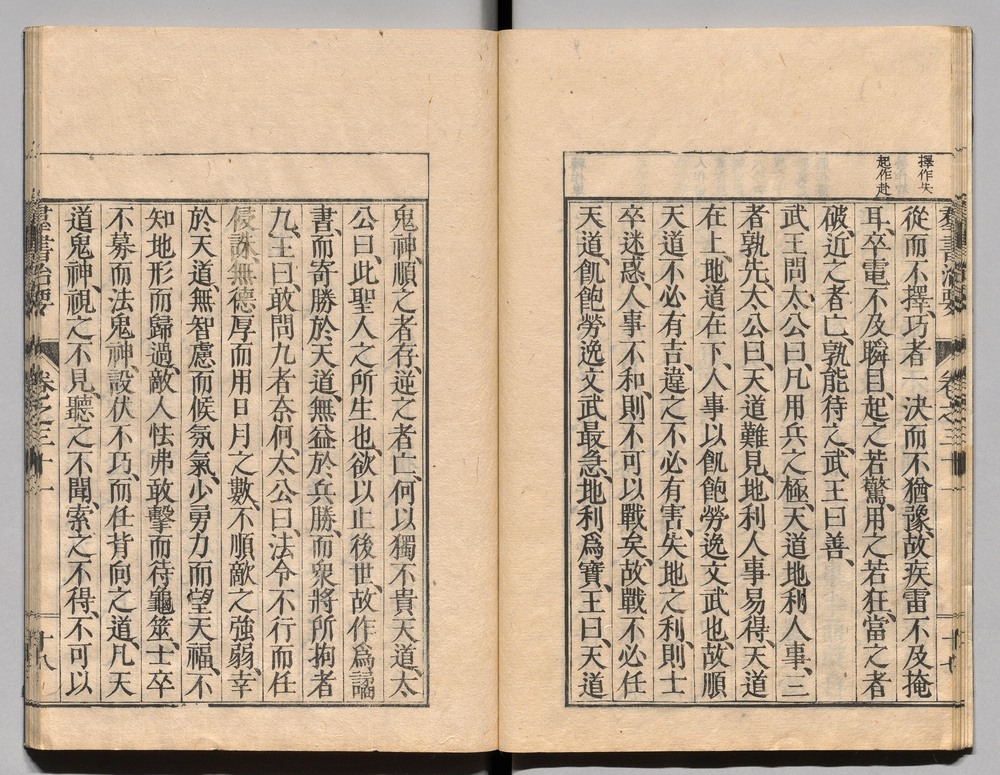 擇作失
起作赴
群書治要 卷之三十一 十七
從而不擇、巧者一決而不猶豫、故疾雷不及掩
耳、卒電不及瞬目、起之若驚、用之若狂、當之者
破、近之者亡、孰能待之、武王曰善、
武王問太公曰、凡用兵之極、天道地利人事、三
者孰先、太公曰、天道難見、地利人事易得、天道
在上、地道在下、人事以飢飽勞逸文武也、故順
天道不必有吉、違之不必有害、失地之利、則士
卒迷惑、人事不和、則不可以戰矣、故戰不必任
天道、飢飽勞逸文武最急、地利爲寶、王曰、天道
鬼神、順之者存、逆之者亡、何以獨不貴天道、太
公曰、此聖人之所生也、欲以止後世、故作爲譎
書、而寄勝於天道、無益於兵勝、而衆將所拘者
九、王曰、敢問九者奈何、太公曰、法令不行而任
侵誅、無德厚而用日月之數、不順敵之強弱、幸
於天道、無智慮而候氛氣、少勇力而望天福、不
知地形而歸過、敵人怯弗敢擊而待龜筮、士卒
不募而法鬼神、設伏不巧、而任背向之道、凡天
道鬼神、視之不見、聽之不聞、索之不得、不可以
群書治要 卷之三十一 十八